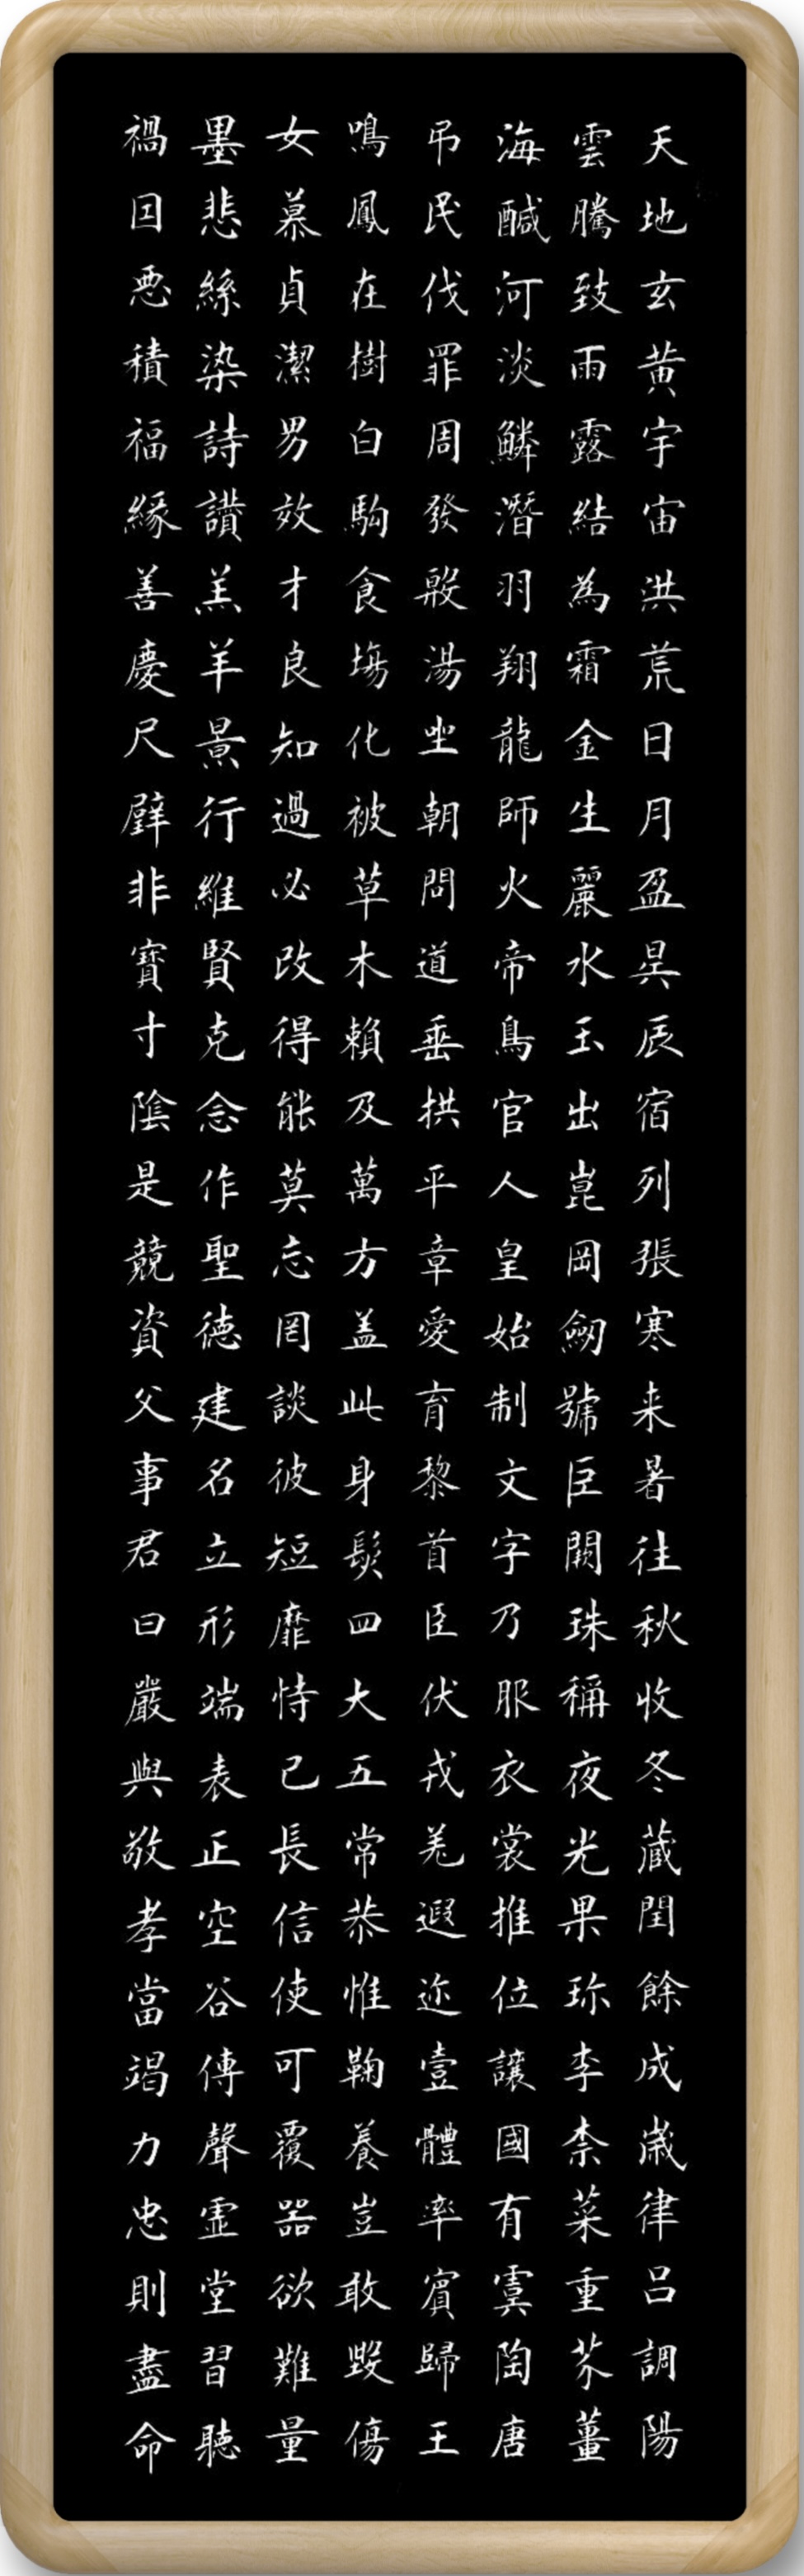 天地玄黃宇宙洪荒日月盈昃辰宿列張寒来暑往秋收冬蔵閏餘成歲律呂調陽
雲騰致雨露結為霜金生麗水玉出崑岡劒號巨闕珠稱夜光果珎李柰菜重芥薑
海醎河淡鱗潛羽翔龍師火帝鳥官人皇始制文字乃服衣裳推位讓國有虞陶唐
弔民伐罪周發殷湯坐朝問道垂拱平章愛育黎首臣伏戎羌遐迩壹體率賓歸王
鳴鳳在樹白駒食場化被草木賴及萬方盖此身髮四大五常恭惟鞠養豈敢毀傷
女慕貞潔男效才良知過必改得能莫忘罔談彼短靡恃己長信使可覆器欲難量
墨悲絲染詩讃羔羊景行維賢克念作聖德建名立形端表正空谷傳聲虛堂習聽
禍因惡積福緣善慶尺璧非寶寸陰是競資父事君曰嚴與敬孝當竭力忠則盡命